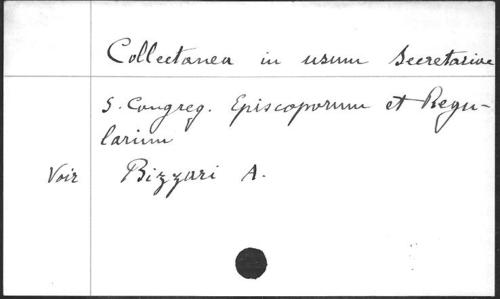 Collectanea in usum Secretariae
S. Congreg. Episcoporum et Regu-
larium
Voir Bizzari A.